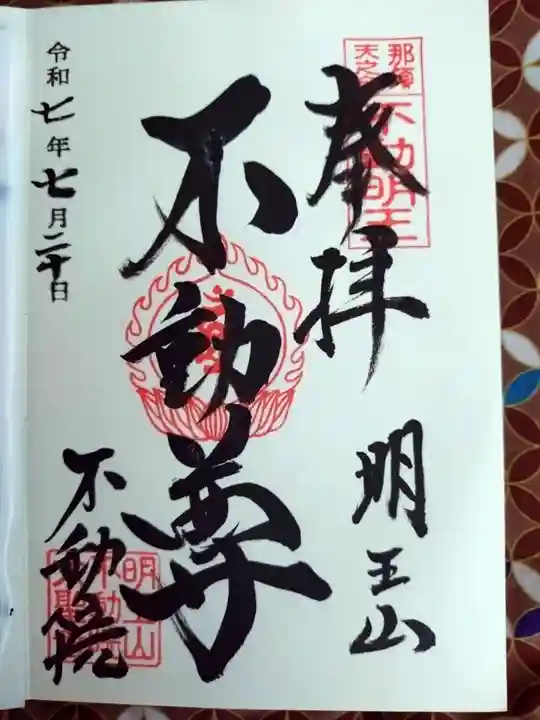 奉拝
明王山
不動尊
不動院
令和七年七月二十日
那須
不動明王
明山